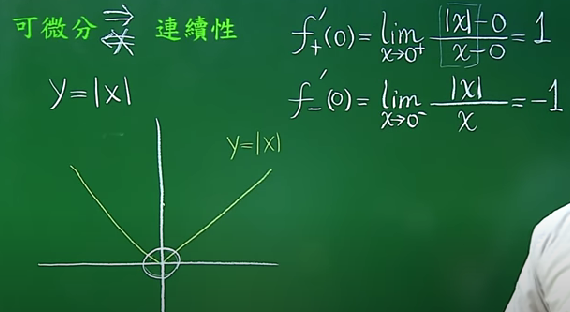 可微分 ⇒ ⇍ 連續性
y=|x|
y=|x|
f₊′(0)= lim x→0⁺ |x|-0 / x-0 = 1
f₋′(0)= lim x→0⁻ |x| / x = -1